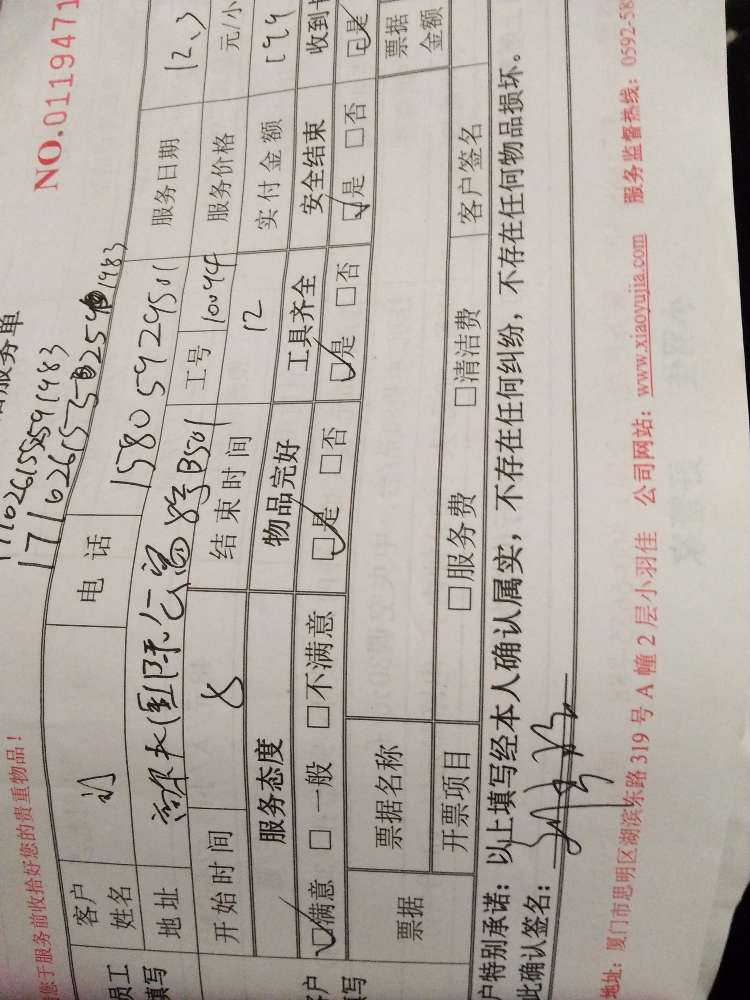 NO.0119471
服务单
17162615525591983
您于服务前收拾好您的贵重物品！
员工 填写
客户姓名
电话 15805929501 服务日期 12.3
地址 B501 工号 10094 服务价格 元/小
开始时间 8 结束时间 12 实付金额 199
服务态度 物品完好 工具齐全 安全结束 收到
☑满意 □一般 □不满意 ☑是 □否 ☑是 □否 ☑是 □否 ☑是
客户 填写
票据 票据名称 票据金额
开票项目 □服务费 □清洁费 客户签名
户特别承诺：以上填写经本人确认属实，不存在任何纠纷，不存在任何物品损坏。
此确认签名：
地址：厦门市思明区湖滨东路 319 号 A 幢 2 层小羽佳 公司网站：www.xiaoyujia.com 服务监督热线：0592-58